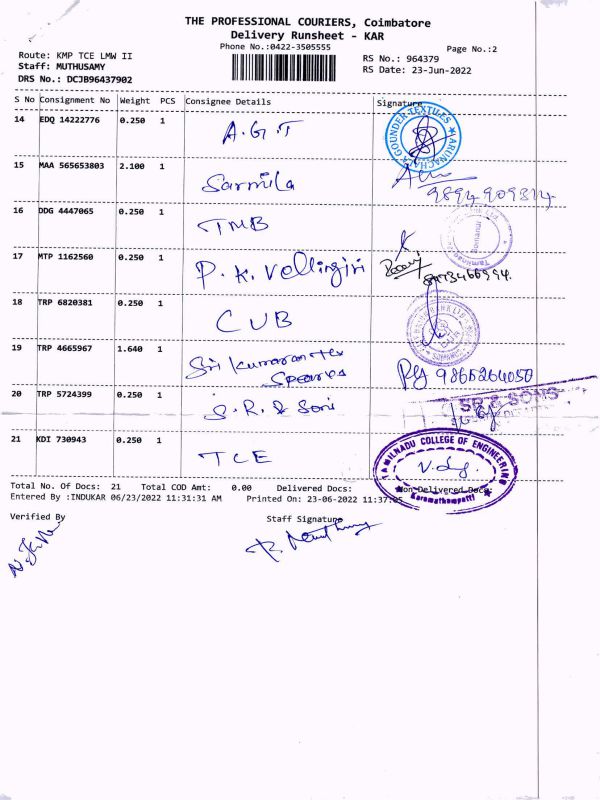 THE PROFESSIONAL COURIERS, Coimbatore
Delivery Runsheet - KAR
Phone No.:0422-3505555
Page No.:2
Route: KMP TCE LMW II
RS No.: 964379
Staff: MUTHUSAMY
RS Date: 23-Jun-2022
DRS No.: DCJB96437902
S No Consignment No Weight PCS Consignee Details Signature
14 EDQ 14222776 0.250 1 A.G.T
ARUNACHALA GOUNDER TEXTILES
15 MAA 565653803 2.100 1 Sarmila
9894909314
16 DDG 4447065 0.250 1 TMB
17 MTP 1162560 0.250 1 P.K. Vellingiri
18 TRP 6820381 0.250 1 CUB
19 TRP 4665967 1.640 1 Sri Kumaran Tex
Speares
9865264050
20 TRP 5724399 0.250 1 S.R. & Sons
SR & SONS
21 KDI 730943 0.250 1 TCE
TAMILNADU COLLEGE OF ENGINEERING
Karumathampatti
Total No. Of Docs: 21 Total COD Amt: 0.00 Delivered Docs: Non Delivered Docs:
Entered By :INDUKAR 06/23/2022 11:31:31 AM Printed On: 23-06-2022 11:37:05
Verified By Staff Signature